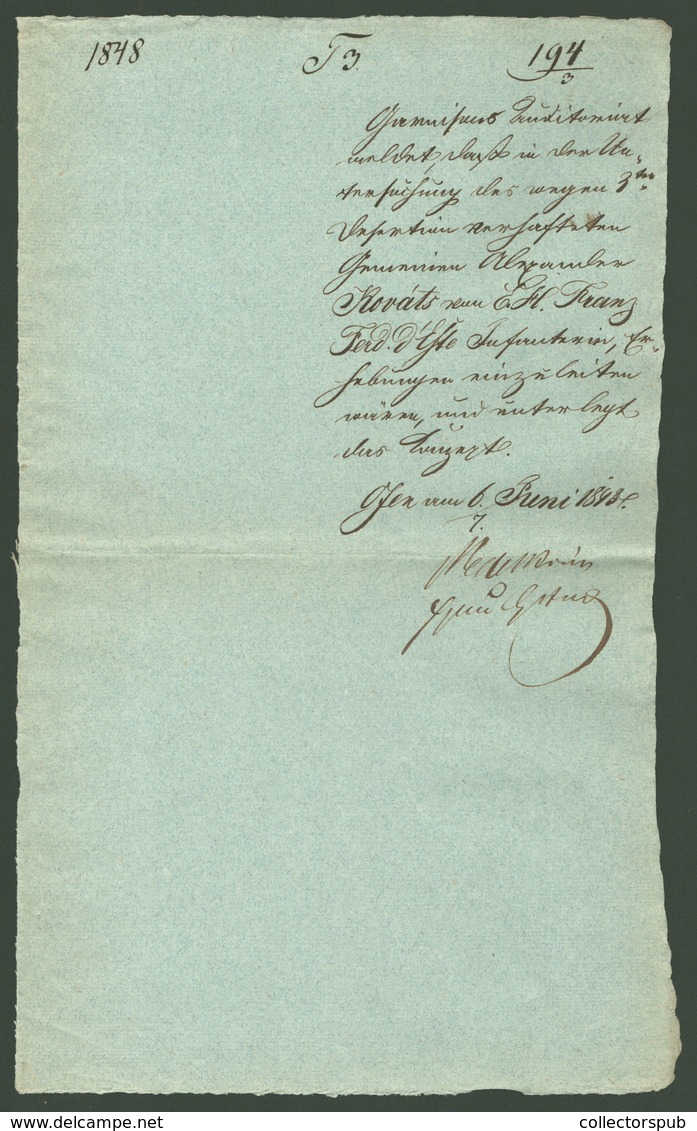 1848 T3. 194/3
Garnisons Auditoriat
meldet, daß in der Un-
tersuchung des wegen 3ter
Desertion verhafteten
Gemeinen Alexander
Kováts von E. H. Franz
Ferd. d'Este Infanterie, Er-
hebungen einzuleiten
wären, und unterlegt
das Konzept.
Ofen am 6. Juni 1848.
7.
collectorspub